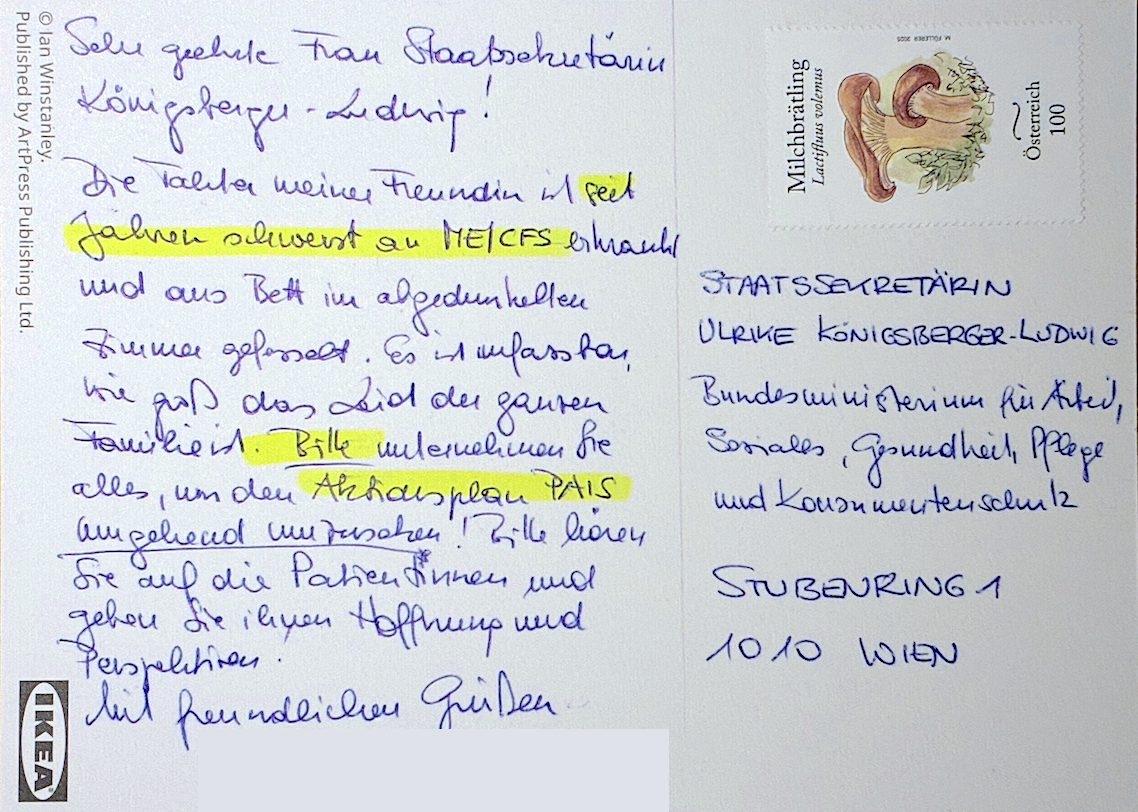 Sehr geehrte Frau Staatssekretärin
Königsberger-Ludwig!
Die Tochter meiner Freundin ist seit
Jahren schwerst an ME/CFS erkrankt
und ans Bett im abgedunkelten
Zimmer gefesselt. Es ist unfassbar,
wie groß das Leid der ganzen
Familie ist. Bitte unternehmen Sie
alles, um den Aktionsplan PAIS
umgehend umzusetzen! Bitte hören
Sie auf die Patient*innen und
geben Sie ihnen Hoffnung und
Perspektiven.
Mit freundlichen Grüßen
© Ian Winstanley.
Published by ArtPress Publishing Ltd.
IKEA
Milchbrätling
Lactifluus volemus
M. FÜLLERER 2025
Österreich
100
STAATSSEKRETÄRIN
ULRIKE KÖNIGSBERGER-LUDWIG
Bundesministerium für Arbeit,
Soziales, Gesundheit, Pflege
und Konsumentenschutz
STUBENRING 1
1010 WIEN